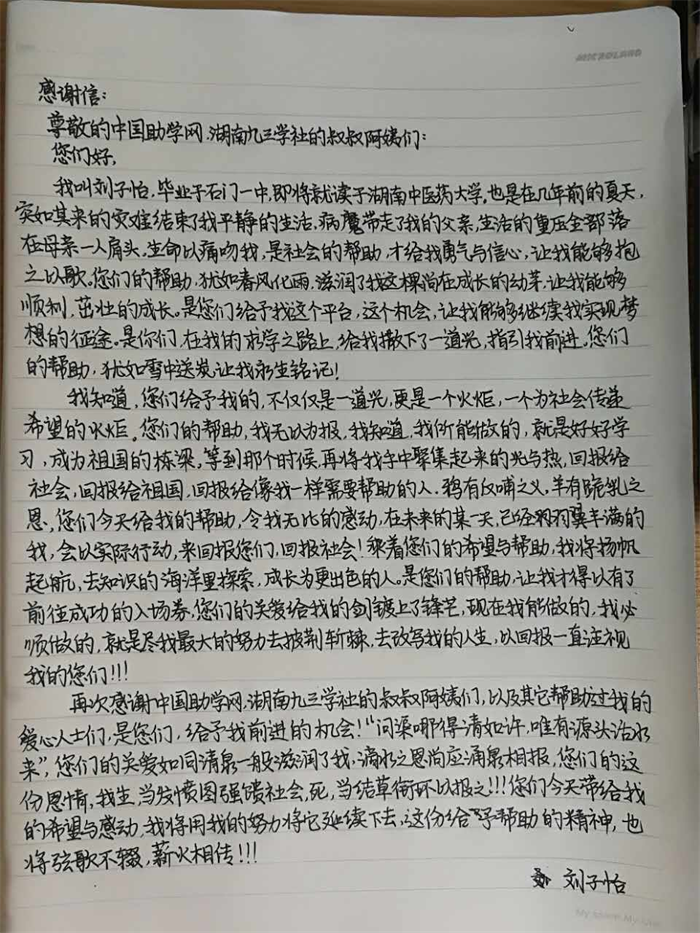 MICROLAND
感谢信：
尊敬的中国助学网、湖南九三学社的叔叔阿姨们：
您们好，
我叫刘子怡，毕业于石门一中，即将就读于湖南中医药大学，也是在几年前的夏天，
突如其来的灾难结束了我平静的生活。病魔带走了我的父亲，生活的重压全部落
在母亲一人肩头，生命以痛吻我，是社会的帮助，才给我勇气与信心，让我能够抱
之以歌，您们的帮助，犹如春风化雨，滋润了我这棵尚在成长的幼芽，让我能够
顺利，茁壮的成长。是您们给予我这个平台，这个机会，让我能够继续我实现梦
想的征途。是你们，在我的求学之路上，给我撒下了一道光，指引我前进。您们
的帮助，犹如雪中送炭，让我永生铭记！
我知道，您们给予我的，不仅仅是一道光，更是一个火炬，一个为社会传递
希望的火炬。您们的帮助，我无以为报，我知道，我所能做的，就是好好学
习，成为祖国的栋梁，等到那个时候，再将我手中聚集起来的光与热，回报给
社会，回报给祖国，回报给像我一样需要帮助的人。鸦有反哺之义，羊有跪乳之
恩，您们今天给我的帮助，令我无比的感动，在未来的某一天，已经羽翼丰满的
我，会以实际行动，来回报您们，回报社会！乘着您们的希望与帮助，我将扬帆
起航，去知识的海洋里探索，成长为更出色的人。是您们的帮助，让我才得以有了
前往成功的入场券，您们的关爱给我的剑镀上了锋芒，现在我能做的，我必
须做的，就是尽我最大的努力去披荆斩棘，去改写我的人生，以回报一直注视
我的您们！！！
再次感谢中国助学网、湖南九三学社的叔叔阿姨们，以及其它帮助过我的
爱心人士们，是您们，给予我前进的机会！“问渠哪得清如许，唯有源头活水
来”，您们的关爱如同清泉一般滋润了我，滴水之恩尚应涌泉相报，您们的这
份恩情，我生，当发愤图强馈社会，死，当结草衔环以报之！！！您们今天带给我
的希望与感动，我将用我的努力将它延续下去，这份给予帮助的精神，也
将弦歌不辍，薪火相传！！！
刘子怡